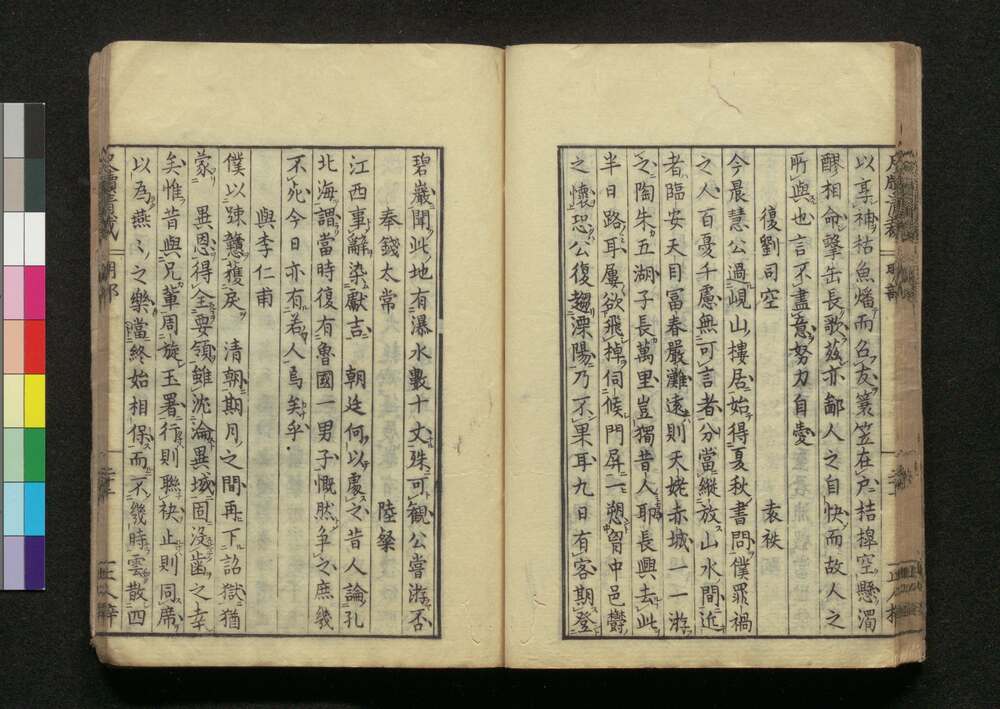 以享神枯魚燔而召友簑笠在戸桔槹空懸濁
醪相命擊缶長歌茲亦鄙人之自快而故人之
所與也言不盡意努力自愛
復劉司空　袁袟
今晨慧公過峴山樓居始得夏秋書問僕罪禍
之人百憂千慮無可言者分當縱放山水間近
者臨安天目冨春嚴灘遠則天姥赤城一一游
之陶朱五湖子長萬里豈獨昔人耶長興去此
半日路耳屢欲飛掉伺候門屏一愬胷中邑欝
之懷恐公復趨溧陽乃不果耳九日有客期登
碧巖聞此地有瀑水數十丈殊可觀公嘗游否
奉錢太常　陸粲
江西事辭染獻吉　朝廷何以處之昔人論孔
北海謂當時復有魯國一男子慨然爭之庶幾
不死今日亦有若人焉矣乎
與李仁甫
僕以踈戇蒦戾　清朝期月之間再下詔獄猶
蒙　異恩得全要領雖沈淪異域固沒齒之幸
矣惟昔與兄軰周旋玉署行則聯袂止則同席
以為燕〻之樂當終始相保而不幾時雲散四